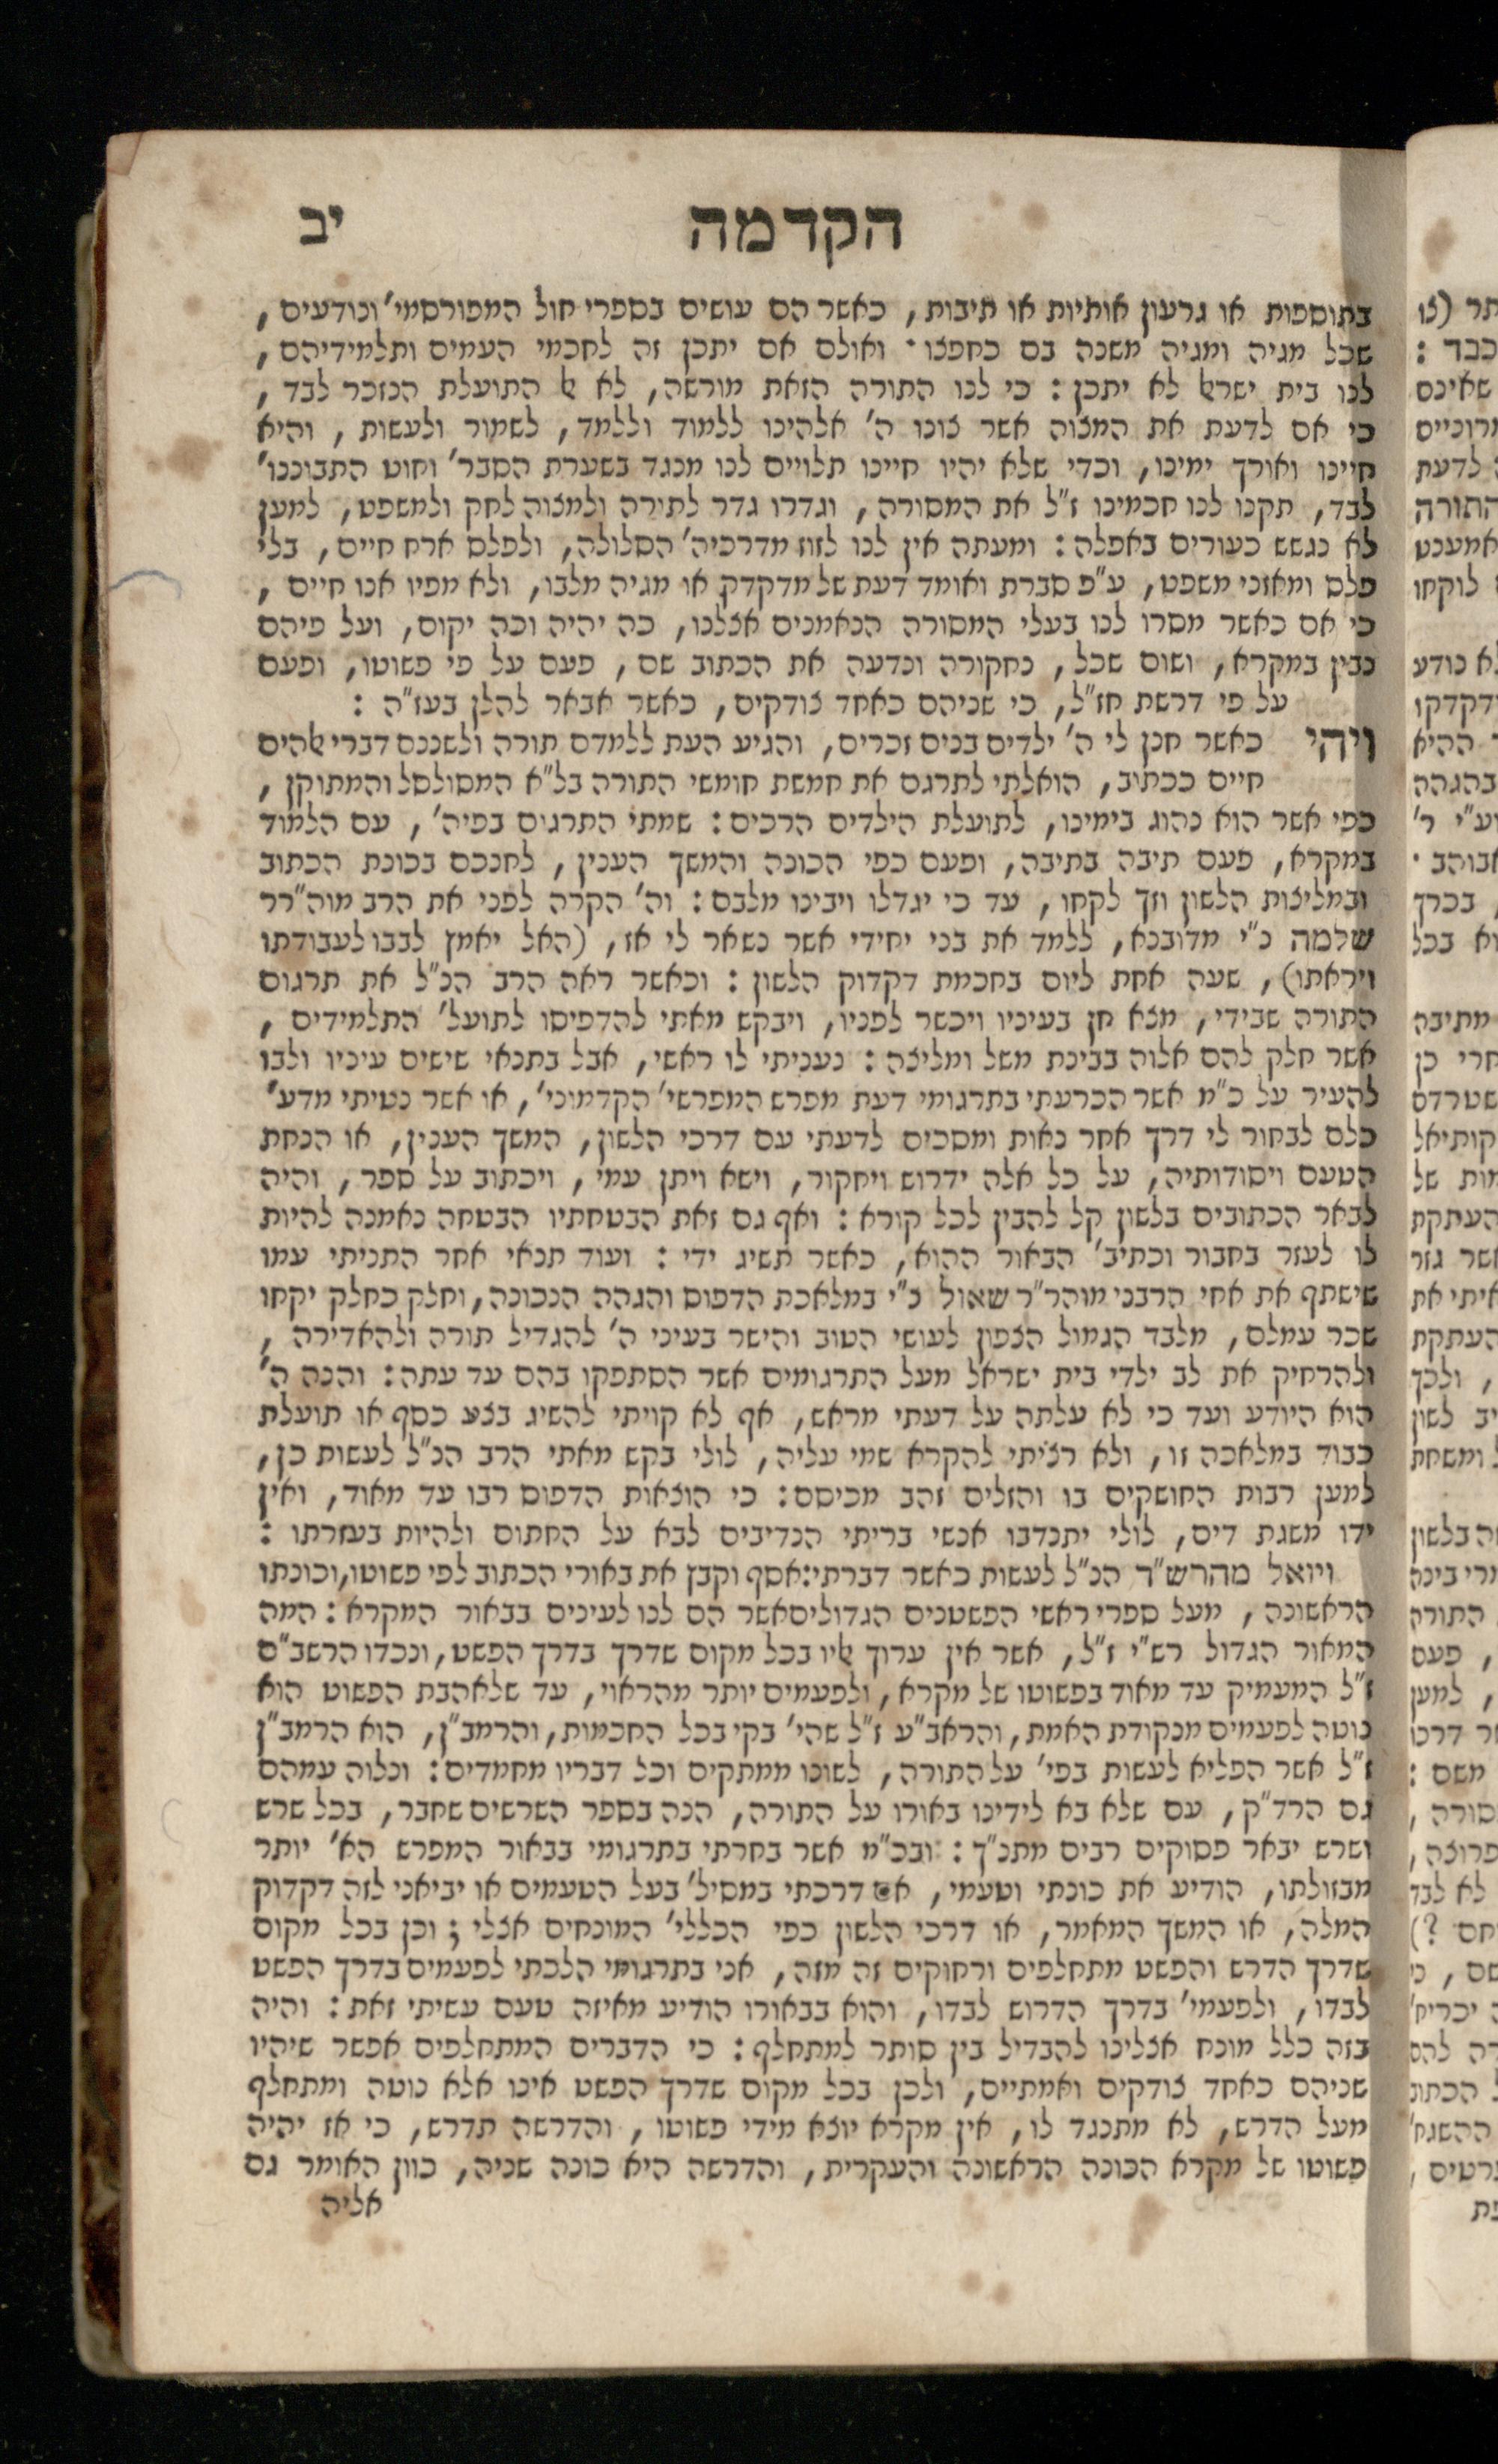 הקדמה
יב
בתוספות או גרעון אותיות או תיבות, כאשר הם עושים בספרי חול המפורסמי' ונודעים,
שכל מגיה ומגיה משנה בם כחפצו· ואולם אם יתכן זה לחכמי העמים ותלמידיהם,
לנו בית ישראל לא יתכן: כי לנו התורה הזאת מורשה, לא אל התועלת הנזכר לבד,
כי אם לדעת את המצוה אשר צונו ה' אלהינו ללמוד וללמד, לשמור ולעשות, והיא
חיינו ואורך ימינו, וכדי שלא יהיו חיינו תלויים לנו מנגד בשערת הסבר' וחוט התבוננו'
לבד, תקנו לנו חכמינו ז"ל את המסורה, וגדרו גדר לתורה ולמצוה לחק ולמשפט, למען
לא נגשש כעורים באפלה: ומעתה אין לנו לזוז מדרכיה' הסלולה, ולפלס ארח חיים, בלי
פלס ומאזני משפט, ע"פ סברת ואומד דעת של מדקדק או מגיה מלבו, ולא מפיו אנו חיים,
כי אם כאשר מסרו לנו בעלי המסורה הנאמנים אצלנו, כה יהיה וכה יקום, ועל פיהם
נבין במקרא, ושום שכל, נחקורה ונדעה את הכתוב שם, פעם על פי פשוטו, ופעם
על פי דרשת חז"ל, כי שניהם כאחד צודקים, כאשר אבאר להלן בעז"ה:
ויהי כאשר חנן לי ה' ילדים בנים זכרים, והגיע העת ללמדם תורה ולשננם דברי אלהים
חיים ככתוב, הואלתי לתרגם את חמשת חומשי התורה בל"א המסולסל והמתוקן,
כפי אשר הוא נהוג בימינו, לתועלת הילדים הרכים: שמתי התרגום בפיה', עם הלמוד
במקרא, פעם תיבה בתיבה, ופעם כפי הכונה והמשך הענין, לחנכם בכונת הכתוב
ובמליצות הלשון וזך לקחו, עד כי יגדלו ויבינו מלבם: וה' הקרה לפני את הרב מוה"רר
שלמה נ"י מדובנא, ללמד את בני יחידי אשר נשאר לי אז, (האל יאמץ לבבו לעבודתו
ויראתו), שעה אחת ליום בחכמת דקדוק הלשון: וכאשר ראה הרב הנ"ל את תרגום
התורה שבידי, מצא חן בעיניו ויכשר לפניו, ויבקש מאתי להדפיסו לתועל' התלמידים,
אשר חלק להם אלוה בבינת משל ומליצה: נעניתי לו ראשי, אבל בתנאי שישים עיניו ולבו
להעיר על כ"מ אשר הכרעתי בתרגומי דעת מפרש המפרשי' הקדמוני', או אשר נטיתי מדע'
כלם לבחור לי דרך אחר נאות ומסכים לדעתי עם דרכי הלשון, המשך הענין, או הנחת
הטעם ויסודותיה, על כל אלה ידרוש ויחקור, וישא ויתן עמי, ויכתוב על ספר, והיה
לבאר הכתובים בלשון קל להבין לכל קורא: ואף גם זאת הבטחתיו הבטחה נאמנה להיות
לו לעזר בחבור וכתיב' הבאור ההוא, כאשר תשיג ידי: ועוד תנאי אחר התניתי עמו
שישתף את אחי הרבני מוהר"ר שאול נ"י במלאכת הדפוס והגהה הנכונה, וחלק כחלק יקחו
שכר עמלם, מלבד הגמול הצפון לעושי הטוב והישר בעיני ה' להגדיל תורה ולהאדירה,
ולהרחיק את לב ילדי בית ישראל מעל התרגומים אשר הסתפקו בהם עד עתה: והנה ה'
הוא היודע ועד כי לא עלתה על דעתי מראש, אף לא קויתי להשיג בצע כסף או תועלת
כבוד במלאכה זו, ולא רציתי להקרא שמי עליה, לולי בקש מאתי הרב הנ"ל לעשות כן,
למען רבות החושקים בו והזלים זהב מכיסם: כי הוצאות הדפוס רבו עד מאוד, ואין
ידו משגת דים, לולי יתנדבו אנשי בריתי הנדיבים לבא על החתום ולהיות בעזרתו:
ויואל מהרש"ד הנ"ל לעשות כאשר דברתי: אסף וקבץ את באורי הכתוב לפי פשוטו, וכונתו
הראשונה, מעל ספרי ראשי הפשטנים הגדולים אשר הם לנו לעינים בבאור המקרא: המה
המאור הגדול רש"י ז"ל, אשר אין ערוך אליו בכל מקום שדרך בדרך הפשט, ונכדו הרשב"ם
ז"ל המעמיק עד מאוד בפשוטו של מקרא, ולפעמים יותר מהראוי, עד שלאהבת הפשוט הוא
נוטה לפעמים מנקודת האמת, והראב"ע ז"ל שהי' בקי בכל החכמות, והרמב"ן, הוא הרמב"ן
ז"ל אשר הפליא לעשות בפי' על התורה, לשונו ממתקים וכל דבריו מחמדים: ונלוה עמהם
גם הרד"ק, עם שלא בא לידינו באורו על התורה, הנה בספר השרשים שחבר, בכל שרש
ושרש יבאר פסוקים רבים מתנ"ך: ובכ"מ אשר בחרתי בתרגומי בבאור המפרש הא' יותר
מבזולתו, הודיע את כונתי וטעמי, אם דרכתי במסיל' בעל הטעמים או יביאני לזה דקדוק
המלה, או המשך המאמר, או דרכי הלשון כפי הכללי' המונחים אצלי; וכן בכל מקום
שדרך הדרש והפשט מתחלפים ורחוקים זה מזה, אני בתרגומי הלכתי לפעמים בדרך הפשט
לבדו, ולפעמי' בדרך הדרוש לבדו, והוא בבאורו הודיע מאיזה טעם עשיתי זאת: והיה
בזה כלל מונח אצלינו להבדיל בין סותר למתחלף: כי הדברים המתחלפים אפשר שיהיו
שניהם כאחד צודקים ואמתיים, ולכן בכל מקום שדרך הפשט אינו אלא נוטה ומתחלף
מעל הדרש, לא מתנגד לו, אין מקרא יוצא מידי פשוטו, והדרשה תדרש, כי אז יהיה
פשוטו של מקרא הכונה הראשונה והעקרית, והדרשה היא כונה שניה, כוון האומר גם
אליה